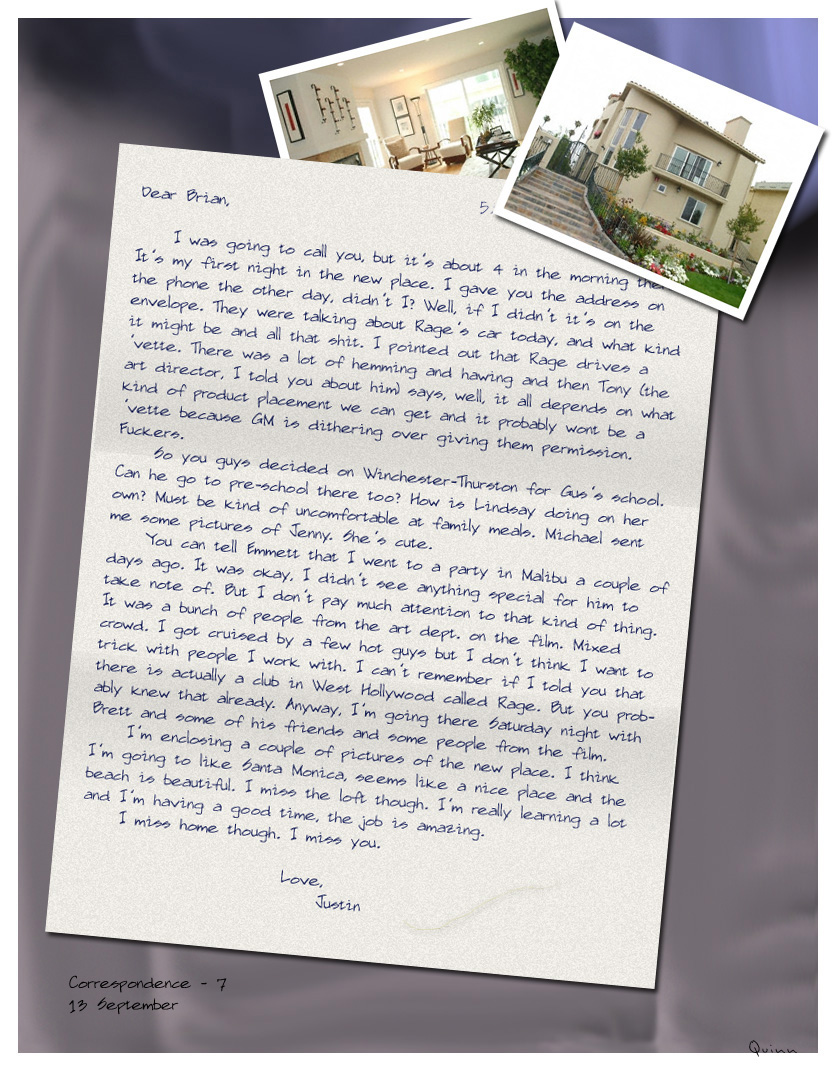 Dear Brian,
5.
I was going to call you, but it's about 4 in the morning
It's my first night in the new place. I gave you the address on
the phone the other day, didn't I? Well, if I didn't it's on the
envelope. They were talking about Rage's car today, and what kind
it might be and all that shit. I pointed out that Rage drives a
'vette. There was a lot of hemming and hawing and then Tony (the
art director, I told you about him) says, well, it all depends on what
kind of product placement we can get and it probably wont be a
'vette because GM is dithering over giving them permission.
Fuckers.
So you guys decided on Winchester-Thurston for Gus's school.
Can he go to pre-school there too? How is Lindsay doing on her
own? Must be kind of uncomfortable at family meals. Michael sent
me some pictures of Jenny. She's cute.
You can tell Emmett that I went to a party in Malibu a couple of
days ago. It was okay, I didn't see anything special for him to
take note of. But I don't pay much attention to that kind of thing.
It was a bunch of people from the art dept. on the film. Mixed
crowd. I got cruised by a few hot guys but I don't think I want to
trick with people I work with. I can't remember if I told you that
there is actually a club in West Hollywood called Rage. But you prob-
ably knew that already. Anyway, I'm going there Saturday night with
Brett and some of his friends and some people from the film.
I'm enclosing a couple of pictures of the new place. I think
I'm going to like Santa Monica, seems like a nice place and the
beach is beautiful. I miss the loft though. I'm really learning a lot
and I'm having a good time, the job is amazing.
I miss home though. I miss you.
Love,
Justin
Correspondence - 7
13 September
Quinn